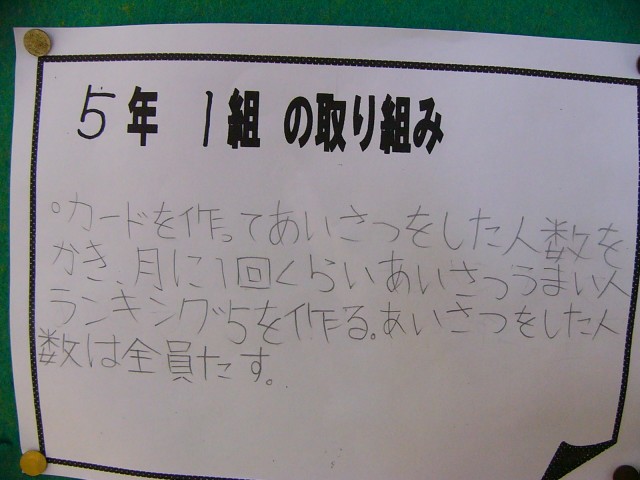 5年 1組 の取り組み
。カードを作ってあいさつをした人数を
かき、月に1回くらいあいさつうまい人
ランキング5を作る。あいさつをした人
数は全員たす。